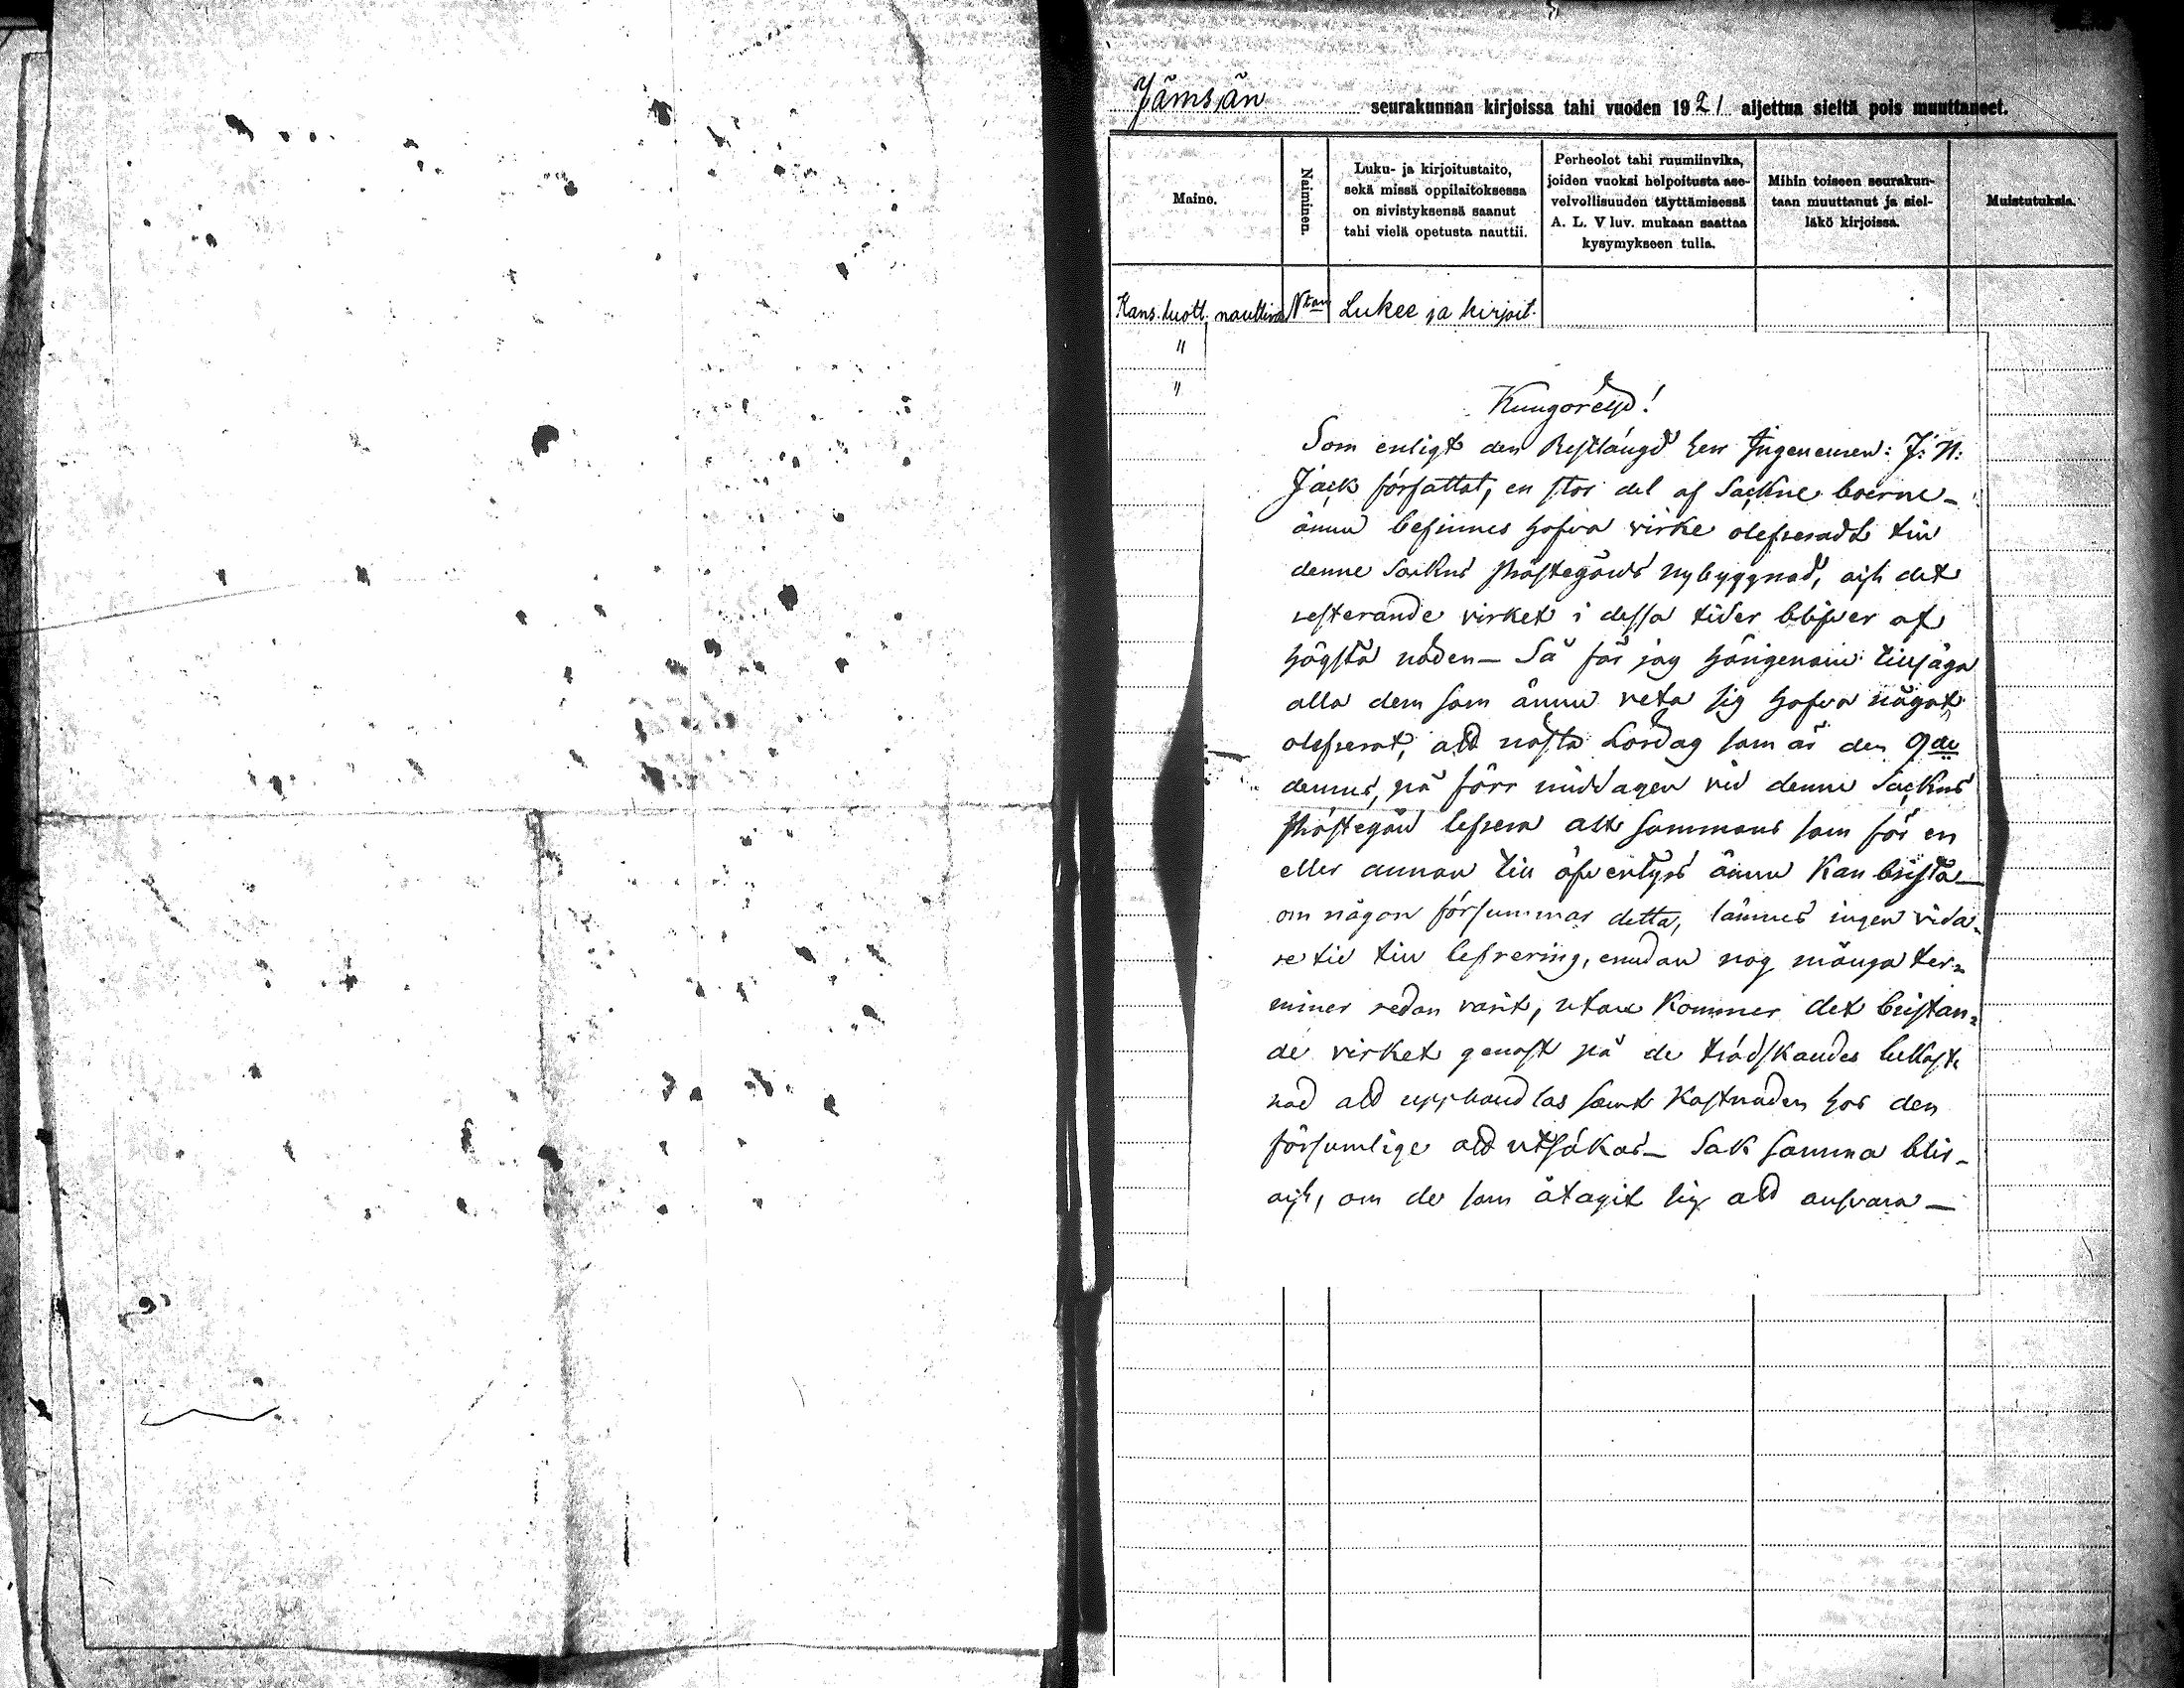 Jämsän seurakunnan kirjoissa tahi vuoden 1921 aljettua sieltä pois muuttaneet.
Maine.
Naiminen.
Luku- ja kirjoitustaito,
sekä missä oppilaitoksessa
on sivistyksensä saanut
tahi vielä opetusta nauttii.
Perheolot tahi ruumiinvika,
joiden vuoksi helpoitusta ase-
velvollisuuden täyttämisessä
A. L. V luv. mukaan saattaa
kysymykseen tulla.
Mihin toiseen seurakun-
taan muuttanut ja siel-
läkö kirjoissa.
Muistutuksia.
Kans. luott. nauttiva Nton Lukee ja kirjoit.
"
"
Kungörelse!
Som enligt den Restlängd herr Ingeneuren: J: N:
Jack författat, en stor del af Sockne boerne-
ännu befinnes hafva virke olefreradt till
denne Sockns Prästegårds nybyggnad, och det
resterande virket i dessa tider blifver af
högsta nöden - Så får jag härigenom tillsäga
alla dem som ännu veta sig hafva något
olefrerat, att nästa Lördag som är den 9de
dennes, på förr middagen vid denne Sockns
Prästegård lefrera allt sammans som för en
eller annan till äfventyrs ännu Kan brista -
om någon försummar detta, lämnas ingen vida-
re tid till lefrering, emedan nog många ter=
miner redan varit, utan Kommer det bristan=
de virket genast på de trädskandes bekost-
nad att upphandlas samt Kostnaden hos den
försumlige att utsökas - Sak samma blir -
och, om de som åtagit sig att ansvara -